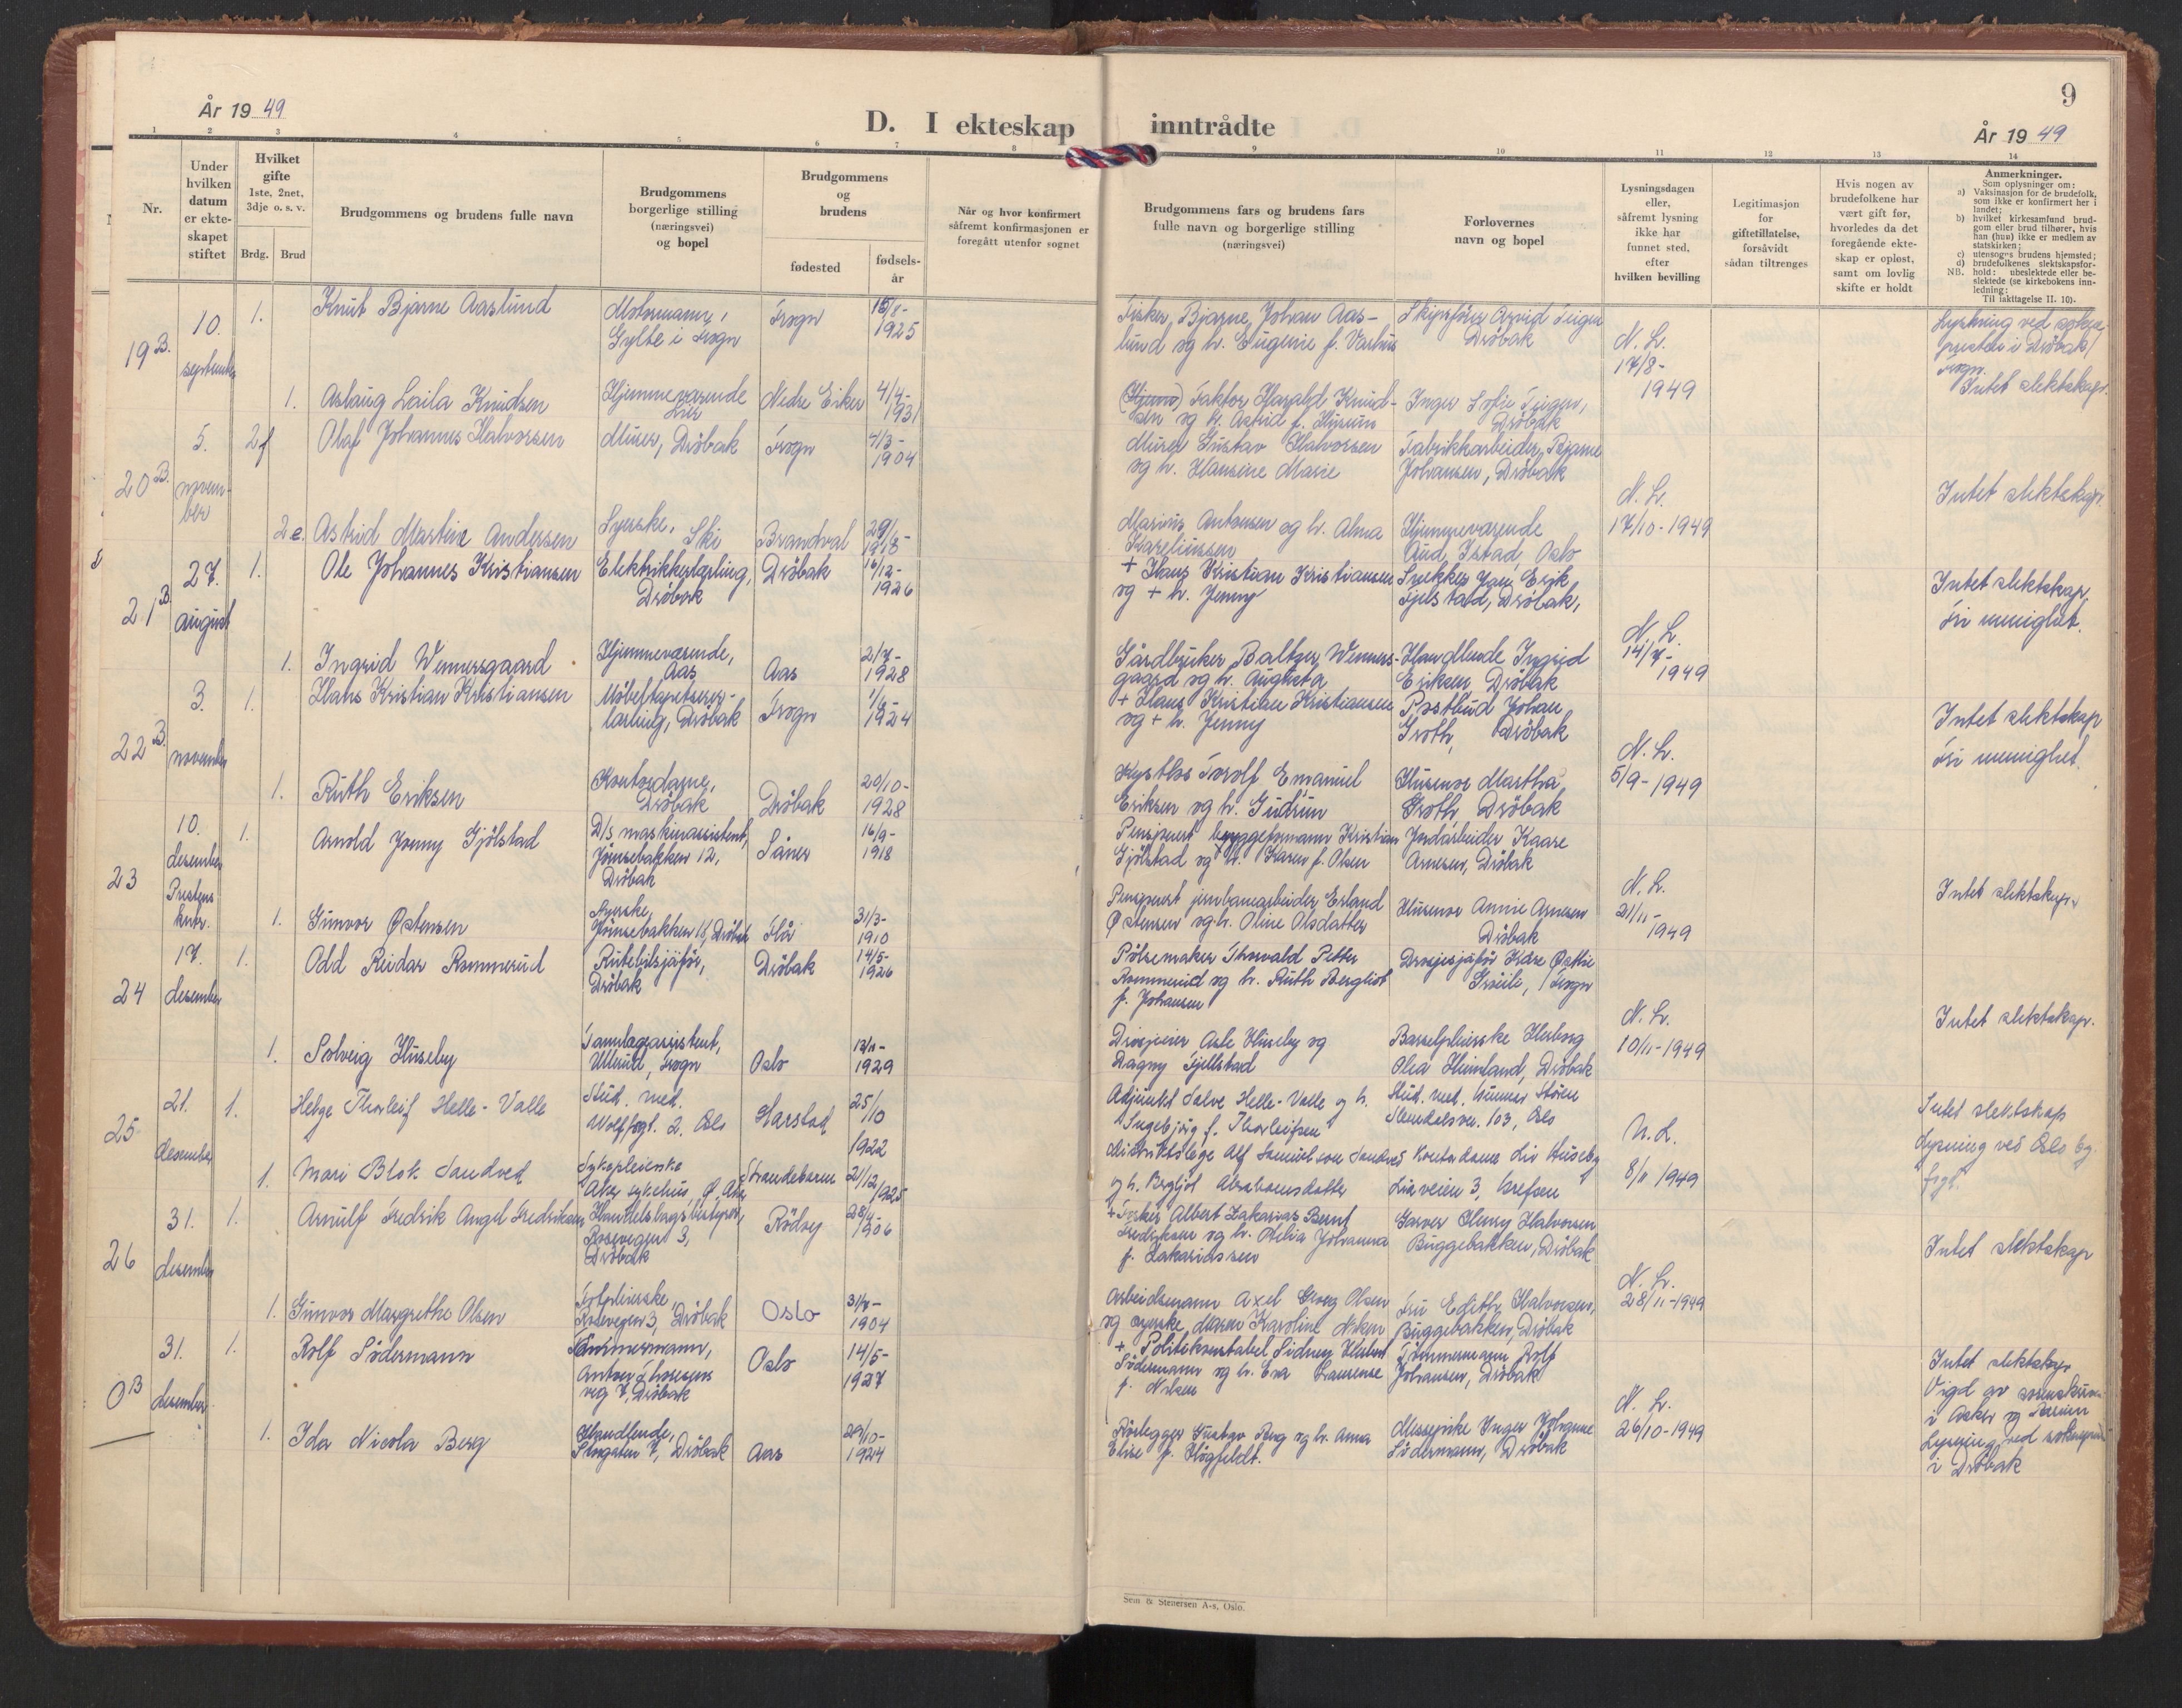 År 1949
D. I ekteskap
inntrådte
9
År 1949
1 2 3 4 5 6 7 8 9 10 11 12 13 14
Nr.
Under
hvilken
datum
er ekte-
skapet
stiftet
Hvilket
gifte
1ste, 2net,
3dje o. s. v.
Brdg. Brud
Brudgommens og brudens fulle navn
Brudgommens
borgerlige stilling
(næringsvei)
og bopel
Brudgommens
og
brudens
fødested
fødsels-
år
Når og hvor konfirmert
såfremt konfirmasjonen er
foregått utenfor sognet
Brudgommens fars og brudens fars
fulle navn og borgerlige stilling
(næringsvei)
Forlovernes
navn og bopel
Lysningsdagen
eller,
såfremt lysning
ikke har
funnet sted,
efter
hvilken bevilling
Legitimasjon
for
giftetillatelse,
forsåvidt
sådan tiltrenges
Hvis nogen av
brudefolkene har
vært gift før,
hvorledes da det
foregående ekte-
skap er opløst,
samt om lovlig
skifte er holdt
Anmerkninger.
Som oplysninger om:
a) Vaksinasjon for de brudefolk,
som ikke er konfirmert her i
landet;
b) hvilket kirkesamfund brud-
gom eller brud tilhører, hvis
han (hun) ikke er medlem av
statskirken;
c) utensogns brudens hjemsted;
d) brudefolkenes slektskapsfor-
NB. hold: ubeslektede eller be-
slektede (se kirkebokens inn-
ledning:
Til iakttagelse II. 10).
19 B.
10.
september
1.
Knut Bjarne Aaslund
Motormann,
Gylte i Frogn
Frogn
15/8-
1925
Fisker Bjarne Johan Aas-
lund og h. Eugenie f.
Skipsfører Arvid Teigen
Drøbak
N. L.
17/8-
1949
Lysning ved sokne
presten i Drøbak/
Frogn.
Intet slektskap.
1.
Aslaug Laila Knudsen
Hjemmeværende
Lier
Nedre Eiker
4/4-
1931
Faktor Harald Knud-
sen og h. Astrid f.
Inger Sofie Teigen,
Drøbak
20 B.
5.
novem-
ber
2 f
Olaf Johannes Halvorsen
Murer, Drøbak
Frogn
4/3-
1904
Murer Gustav Halvorsen
og h. Hansine Marie
Fabrikkarbeider Bjarne
Johansen, Drøbak
N. L.
17/10-1949
Intet slektskap.
2 e.
Astrid Martine Andersen
Syerske, Ski
Brandval
1918
Marius Antonsen og h. Alma
Kareliussen
Hjemmeværende
Aud Istad, Oslo
21 B.
27.
august
1.
Ole Johannes Kristiansen
Elektrikerlærling,
Drøbak
Drøbak
16/12-
1926
+ Hans Kristian Kristiansen
og + h. Jenny
Snekker Jan Erik
Fjelstad, Drøbak,
N. L.
14/7-
1949
Intet slektskap.
Fri menighet.
1.
Ingrid Wennersgaard
Hjemmeværende,
Aas
Aas
2/7-
1928
Gårdbruker Baltzer Wenners-
gaard og h.
Handlende Ingrid
Eriksen, Drøbak
22 B.
3.
november
1.
Hans Kristian Kristiansen
Møbeltapetserer-
lærling, Drøbak
Frogn
1924
+ Hans Kristian Kristiansen
og + h. Jenny
Postbud Johan
Groth, Drøbak
N. L.
5/9-1949
Intet slektskap
Fri menighet.
1.
Ruth Eriksen
Kontordame,
Drøbak
Drøbak
20/10-
1928
Kystlos Torolf Emanuel
Eriksen og h. Gudrun
Husmor Martha
Groth, Drøbak
23
10.
desember
Prestens
kntr.
1.
Arnold Jonny Gjölstad
D/s maskinassistent,
Jönsebakken 12,
Drøbak
Såner
16/9-
1918
Pensjonert byggeformann Kristian
Gjölstad og h. Karen f. Olsen
Jordarbeider Kaare
Arnesen, Drøbak
N. L.
21/11-
1949
Intet slektskap.
1.
Gunvor Østensen
Syerske,
Jönsebakken 18, Drøbak
Flå
31/3-
1910
Pensjonert jernbanearbeider Erland
Østensen og h. Oline Olsdatter
Husmor Annie Arnesen
Drøbak
24
17.
desember
1.
Odd Reidar Rommerud
Rutebilsjåfør,
Drøbak
Drøbak
14/5-
1926
Pølsemaker Thorvald Petter
Rommerud og h. Ruth Bergliot
f. Johansen
Drosjesjåfør Kåre
Frogn
N. L.
10/11-1949
Intet slektskap.
1.
Solveig Huseby
Tannlegeassistent,
Ullerud, Frogn
Oslo
1929
Drosjeeier Asle Huseby og
Dagny Fjellstad
Barselpleierske Herborg
Olea Heimland, Drøbak
25
21.
desember
1.
Helge Thorleif Helle-Valle
Stud. med.
Wolffsgt. 2. Oslo
Harstad
25/10
1922
Adjunkt Salve Helle-Valle og h.
Ingebjörg f. Thorleifsen
Stud. med. Gunnar Stören
103, Oslo
N. L.
8/11 1949
Intet slektskap
Lysning ved Oslo by-
fogd.
1.
Mari Blok Sandved
Sykepleierske
Aker sykehus, Ø. Aker
Strandebarm
21/12
1925
Distriktslege Alf Samuelsen Sandved
og h. Bergljot Abrahamsdatter
Kontordame Liv Huseby
Liaveien 3, Grefsen
26
31.
desember
1.
Arnulf Fredrik Angel Fredriksen
Handelslagsbestyrer,
Rosevegen 3,
Drøbak
Rödöy
28/4-
1906
+ Fisker Albert Zakarias Bernt
Fredriksen og h. Otelia Johanna
f. Zakariassen
Garver Henry Halvorsen
Buggebakken, Drøbak
N. L.
28/11-1949
Intet slektskap
1.
Gunvor Margrethe Olsen
Fotpleierske,
Rosevegen 3, Drøbak
Oslo
1904
Arbeidsmann Axel Georg Olsen
og syerske Maren Karoline Nilsen
Fru Edith Halvorsen,
Buggebakken, Drøbak
0 B
31.
desember
1.
Rolf Södermann
Tömmermann,
Anton Thoresens
veg 7, Drøbak
Oslo
14/5-
1927
+ Politikonstabel Sidney Hubert
Södermann og h. Eva Laurense
f. Nilsen
Tömmermann Rolf
Johansen, Drøbak
N. L.
26/10-1949
Intet slektskap
Vigd av sorenskriveren
i Asker og Bærum
Lysning ved soknepresten
i Drøbak
1.
Ida Nicola Berg
Handlende,
Storgaten 7, Drøbak
Aas
29/10-
1924
Rörlegger Gustav Berg og h. Anna
Elise f. Högfeldt.
Messepike Inger Johanne
Södermann, Drøbak
Sem & Stenersen A-s, Oslo.